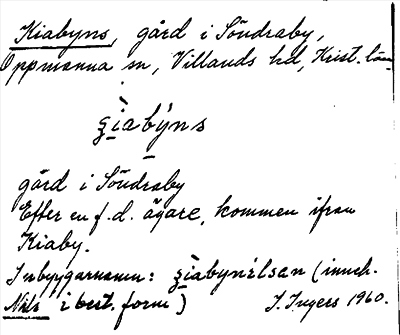 Kiabyns, gård i Söndraby,
Oppmanna sn, Villands hd, Krist. län
gård i Söndraby
Efter en f.d. ägare, kommen ifrån
Kiaby.
Inbyggarnamn: (inneh.
Nils i best. form) I. Ingers 1960.